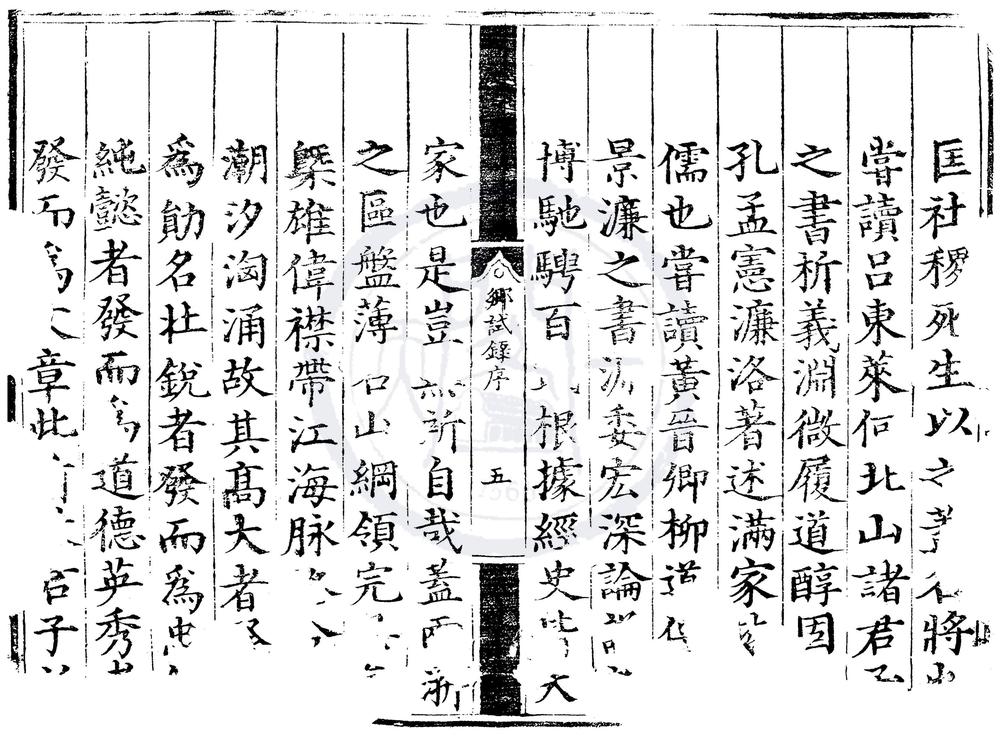 匡社稷死生以之者名將
嘗讀呂東萊何北山諸君子
之書析義淵微履道醇固
孔孟憲濂洛著述滿家
儒也嘗讀黃晉卿柳道
景濂之書源委宏深論
博馳騁百氏根據經史 大
鄉試錄序
五
家也是豈無所自哉蓋兩浙
之區盤薄名山綱領完
槩雄偉襟帶江海脉
潮汐洶涌故其高大者
為勛名壯銳者發而為忠
純懿者發而為道德英秀者
發而為文章此 君子